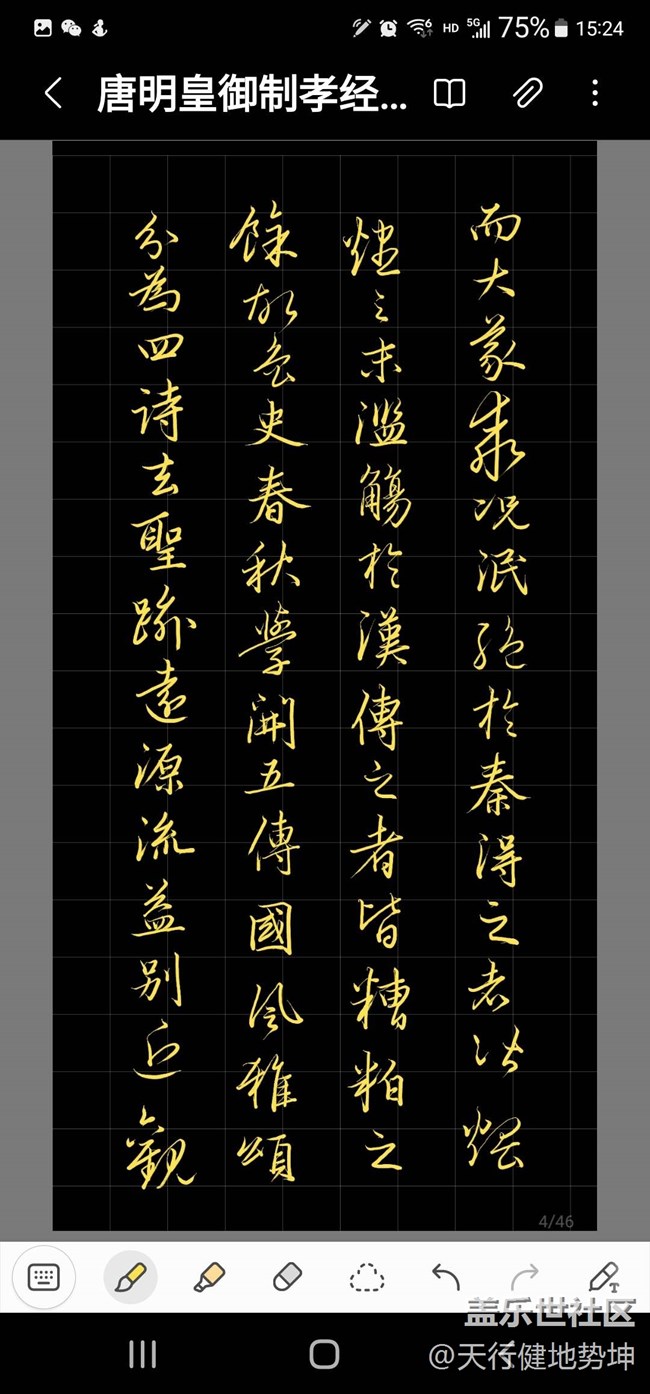 75% 15:24
唐明皇御制孝经...
而大義乖況泯絕於秦得之者皆煨
燼之末濫觴於漢傳之者皆糟粕之
餘故魯史春秋學開五傳國風雅頌
分為四詩去聖踰遠源流益別近觀
4/46
盖乐世社区
@天行健地势坤